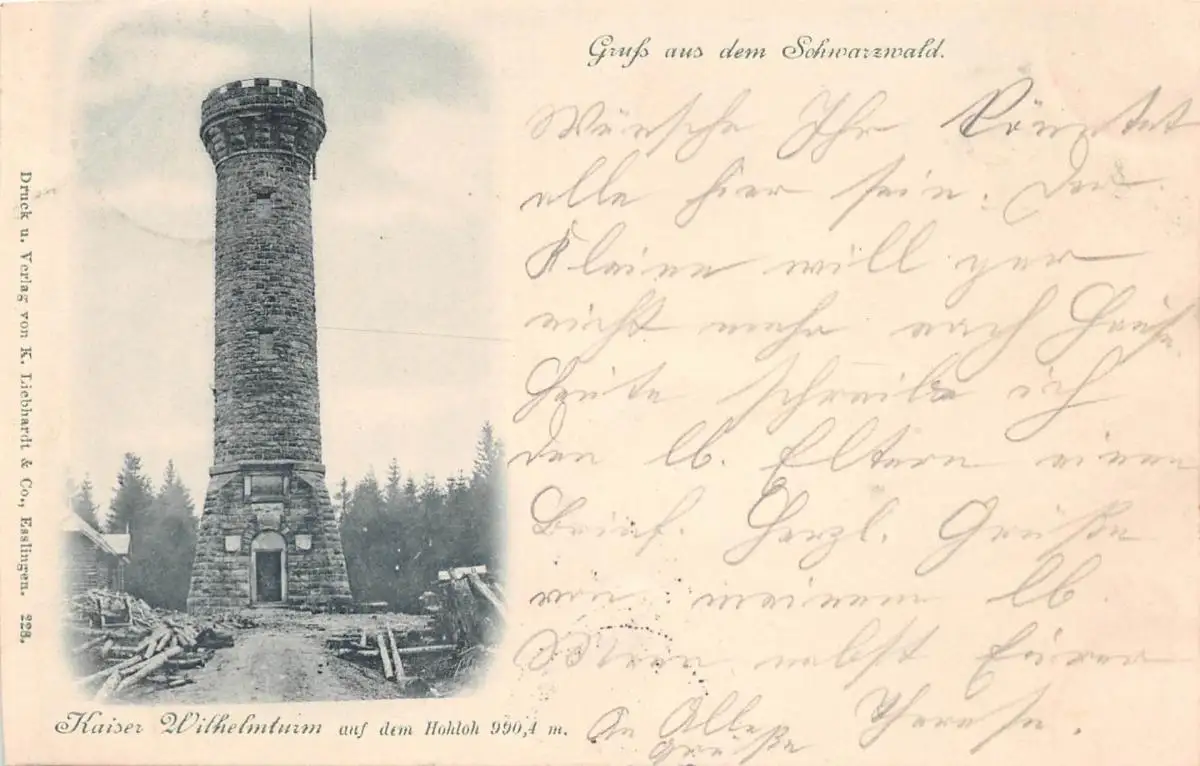 Gruß aus dem Schwarzwald.
Wünsche Ihr könntet
alle hier sein. Der
Kleine will gar
nicht mehr nach Hause
Heute schreibe ich
den lb. Eltern einen
Brief. Herzl. Grüße
von meinem lb.
Mann nebst Eurer
Therese.
An Alle
Grüße
Kaiser Wilhelmturm auf dem Hohloh 990,4 m.
Druck u. Verlag von K. Liebhardt & Co., Esslingen. 228.